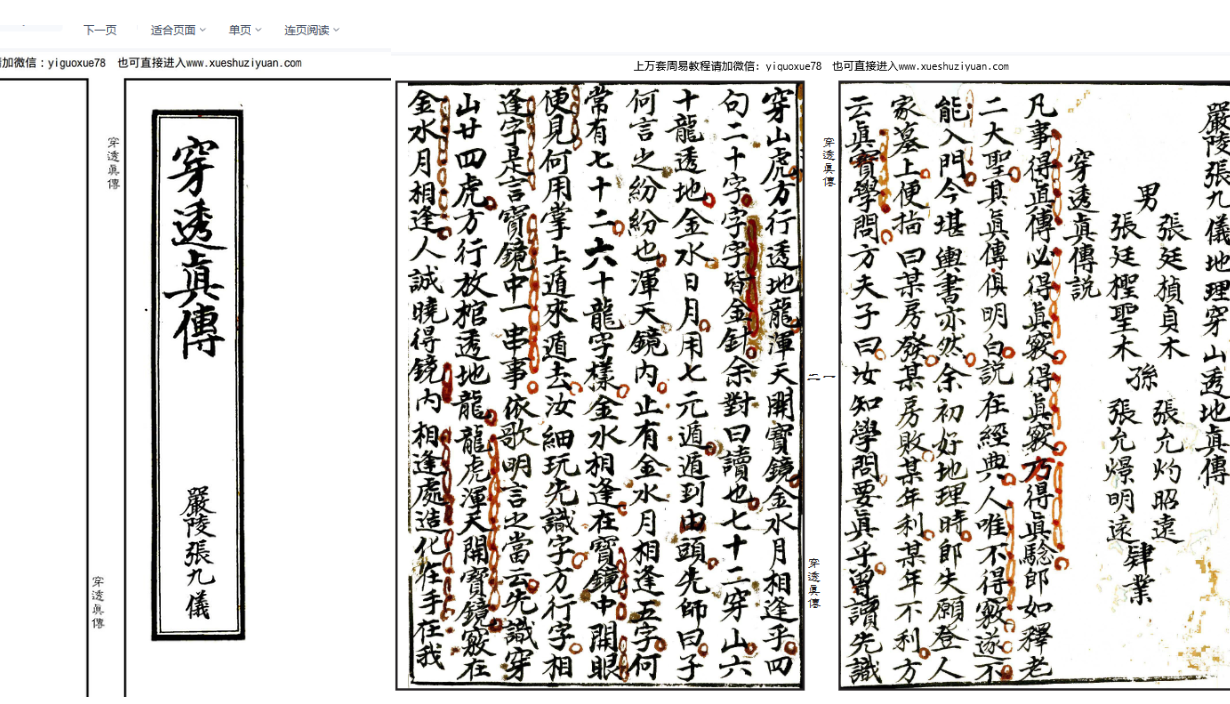 下一页
适合页面
单页
连页阅读
加微信：yiguoxue78 也可直接进入www.xueshuziyuan.com
上万套周易教程请加微信：yiguoxue78 也可直接进入www.xueshuziyuan.com
穿透眞傳
穿透眞傳
嚴陵張九儀
穿透眞傳
穿透眞傳
嚴陵張九儀地理穿山透地眞傳
男
張廷楨貞木
張廷樫聖木
孫
張允灼昭遠
張允爆明遠
肄業
穿透眞傳説
凡事得眞傳必得眞竅得眞竅乃得眞騐即如釋老
二大聖其眞傳俱明白説在經典人唯不得竅遂不
能入門今堪輿書亦然余初好地理時即失願登人
家墓上便指曰某房發某房敗某年利某年不利方
云眞實學問方夫子曰汝知學問要眞乎曾讀先識
穿透眞傳
一
二
穿透眞傳
穿山虎方行透地龍渾天開寶鏡金水月相逢乎四
句二十字字字皆金針余對曰讀也七十二穿山六
十龍透地金水日月用七元遁遁到由頭先師曰子
何言之紛紛也渾天鏡内止有金水月相逢五字何
常有七十二六十龍字樣金水相逢在寶鏡中開眼
便見何用掌上遁來遁去汝細玩先識字方行字相
逢字是言寶鏡中一串事依歌明言之當云先識穿
山廿四虎方行放棺透地龍龍虎渾天開寶鏡竅在
金水月相逢人誠曉得鏡内相逢處造化在手在我